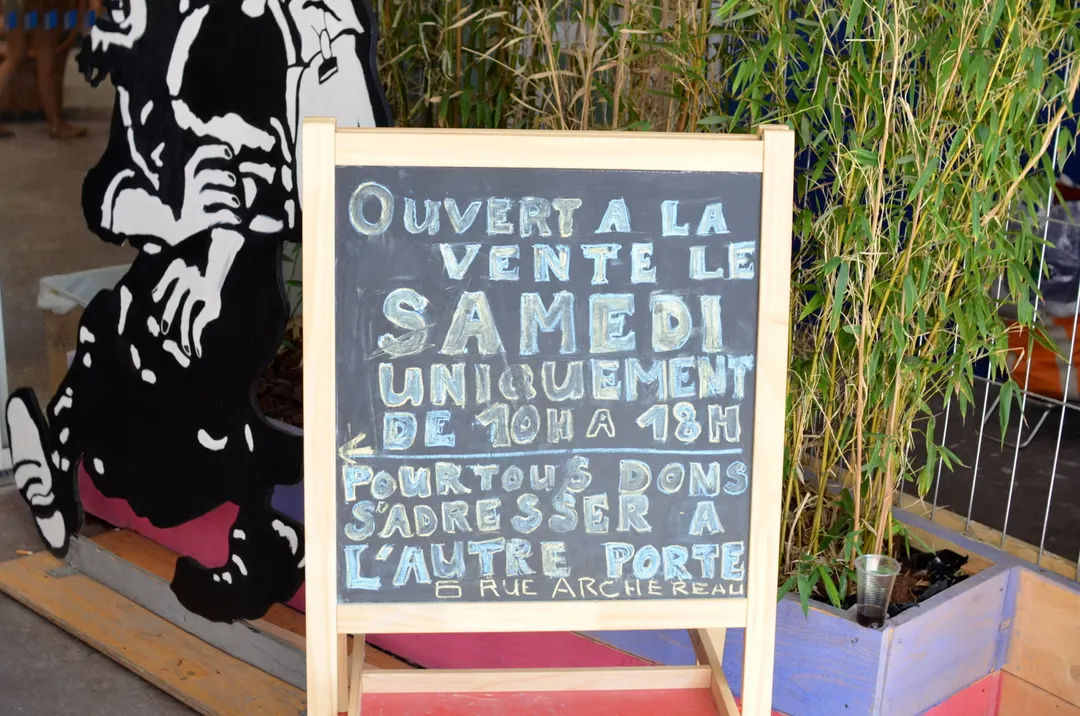 OUVERT A LA
VENTE LE
SAMEDI
UNIQUEMENT
DE 10H A 18H
POUR TOUS DONS
S'ADRESSER A
L'AUTRE PORTE
6 RUE ARCHEREAU